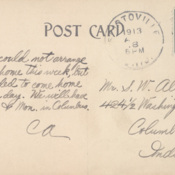 POST CARD
1913
8
PM
could not arrange
home this week, but
led to come home
day. We will had
& Mon. in Columbus.
CA
Mr. J. W. Al
Washing
Colum
Ind